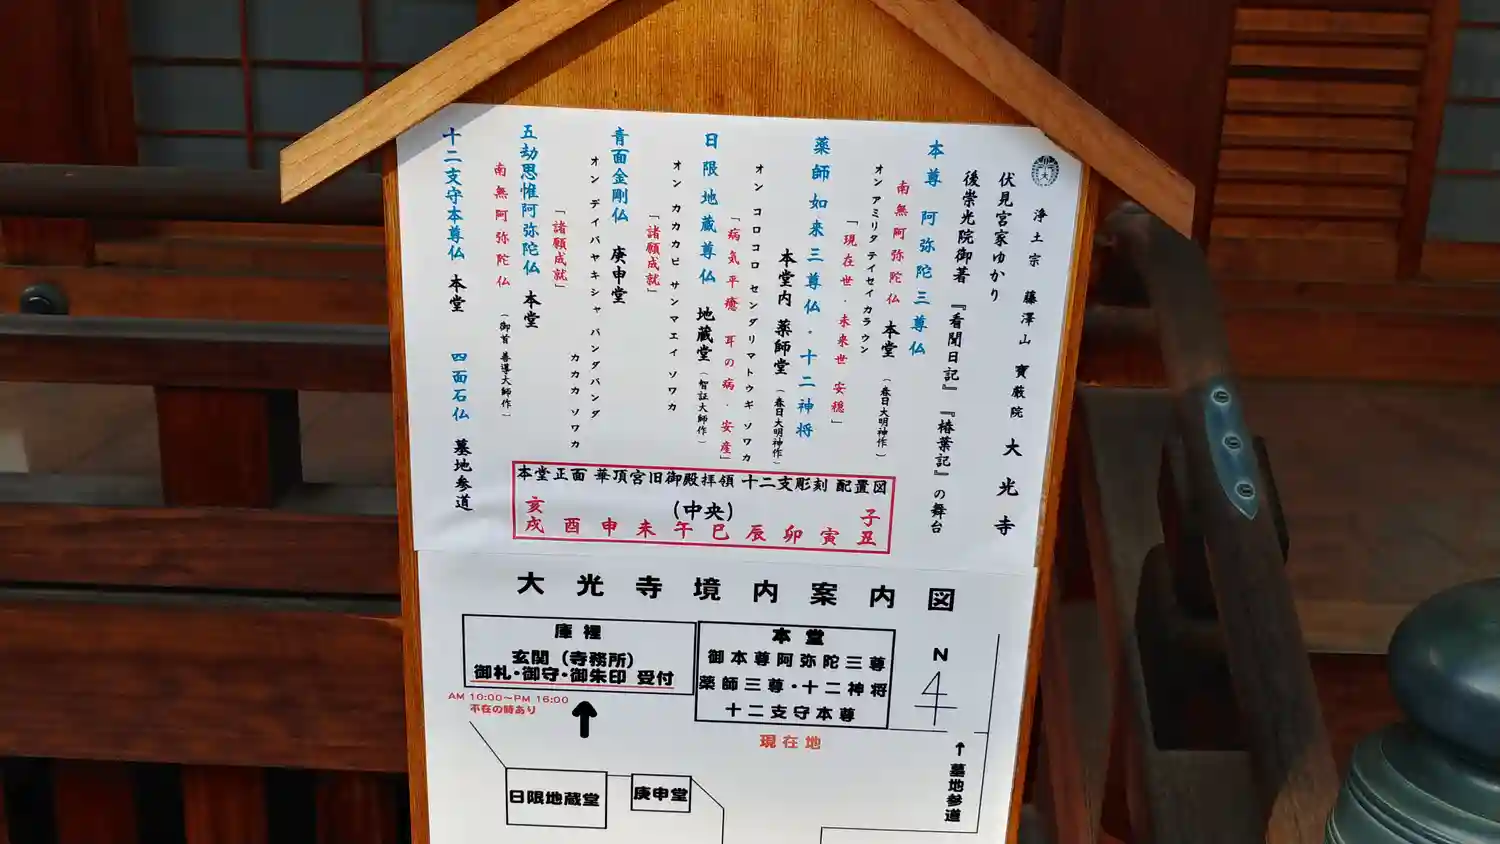 浄土宗 藤澤山 寶厳院 大光寺
伏見宮家ゆかり
後崇光院御著 『看聞日記』『椿葉記』の舞台
本尊 阿弥陀三尊仏
南無阿弥陀仏 本堂 (春日大明神作)
オン アミリタ テイセイ カラウン
「現在世・未来世 安穏」
薬師如来三尊仏・十二神将
本堂内 薬師堂 (春日大明神作)
オン コロコロ センダリマトウギ ソワカ
「病気平癒 耳の病・安産」
日限地蔵尊仏 地蔵堂 (智証大師作)
オン カカカビ サンマエイ ソワカ
「諸願成就」
青面金剛仏 庚申堂
オン デイバヤキシャ バンダバンダ
カカカカ ソワカ
「諸願成就」
五劫思惟阿弥陀仏 本堂
南無阿弥陀仏 (御首 善導大師作)
十二支守本尊仏 本堂 四面石仏 墓地参道
本堂正面 華頂宮旧御殿拝領 十二支彫刻 配置図
(中央)
亥 子
戌 酉 申 未 午 巳 辰 卯 寅 丑
大光寺境内案内図
庫裡
玄関(寺務所)
御札・御守・御朱印 受付
AM 10:00~PM 16:00
不在の時あり
本堂
御本尊阿弥陀三尊
薬師三尊・十二神将
十二支守本尊
現在地
N
↑墓地参道
日限地蔵堂
庚申堂